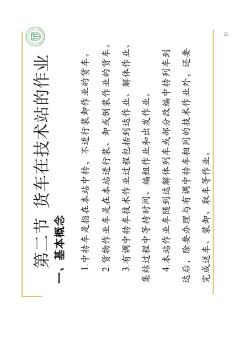 第二节 货车在技术站的作业
一、基本概念
1.中转车是指在本站中转，不进行装卸作业的货车。
2.货物作业车是在本站进行装、卸或倒装作业的货车。
3.有调中转车技术作业过程包括到达作业、解体作业、
集结过程中等待时间、编组作业和出发作业。
4.本站作业车随到达解体列车或部分改编中转列车到
达后，除要办理与有调中转车相同的技术作业外，还要
完成送车、装卸、取车等作业。
10